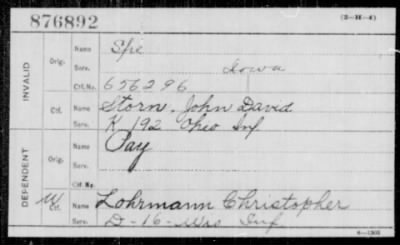 876892
(3-H-4)
INVALID
Orig. Name Spe
Serv. Iowa
Ctf. No. 656296
Ctf. Name Storn. John David
Serv. K 192 Ohio Inf
DEPENDENT
Orig. Name Pay
Serv.
Ctf. No.
W Ctf. Name Lohrmann Christopher
Serv. D-16-Wis Inf